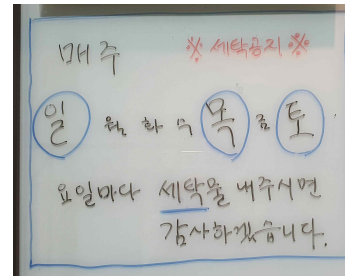 매주 ※ 세탁공지 ※
일 월 화 수 목 금 토
요일마다 세탁물 내주시면
감사하겠습니다.